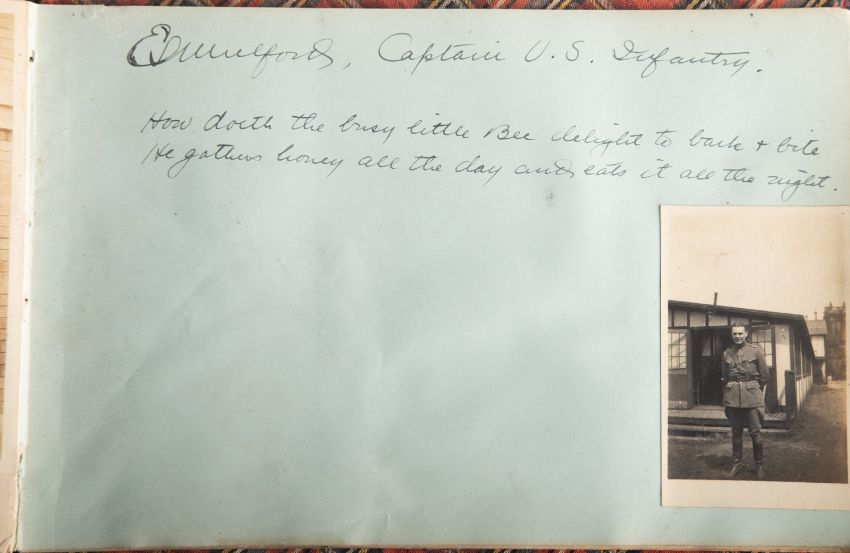 E.D. Mulford, Captain U.S. Infantry.
How doeth the busy little Bee delight to bark + bite
He gathers honey all the day and eats it all the night.